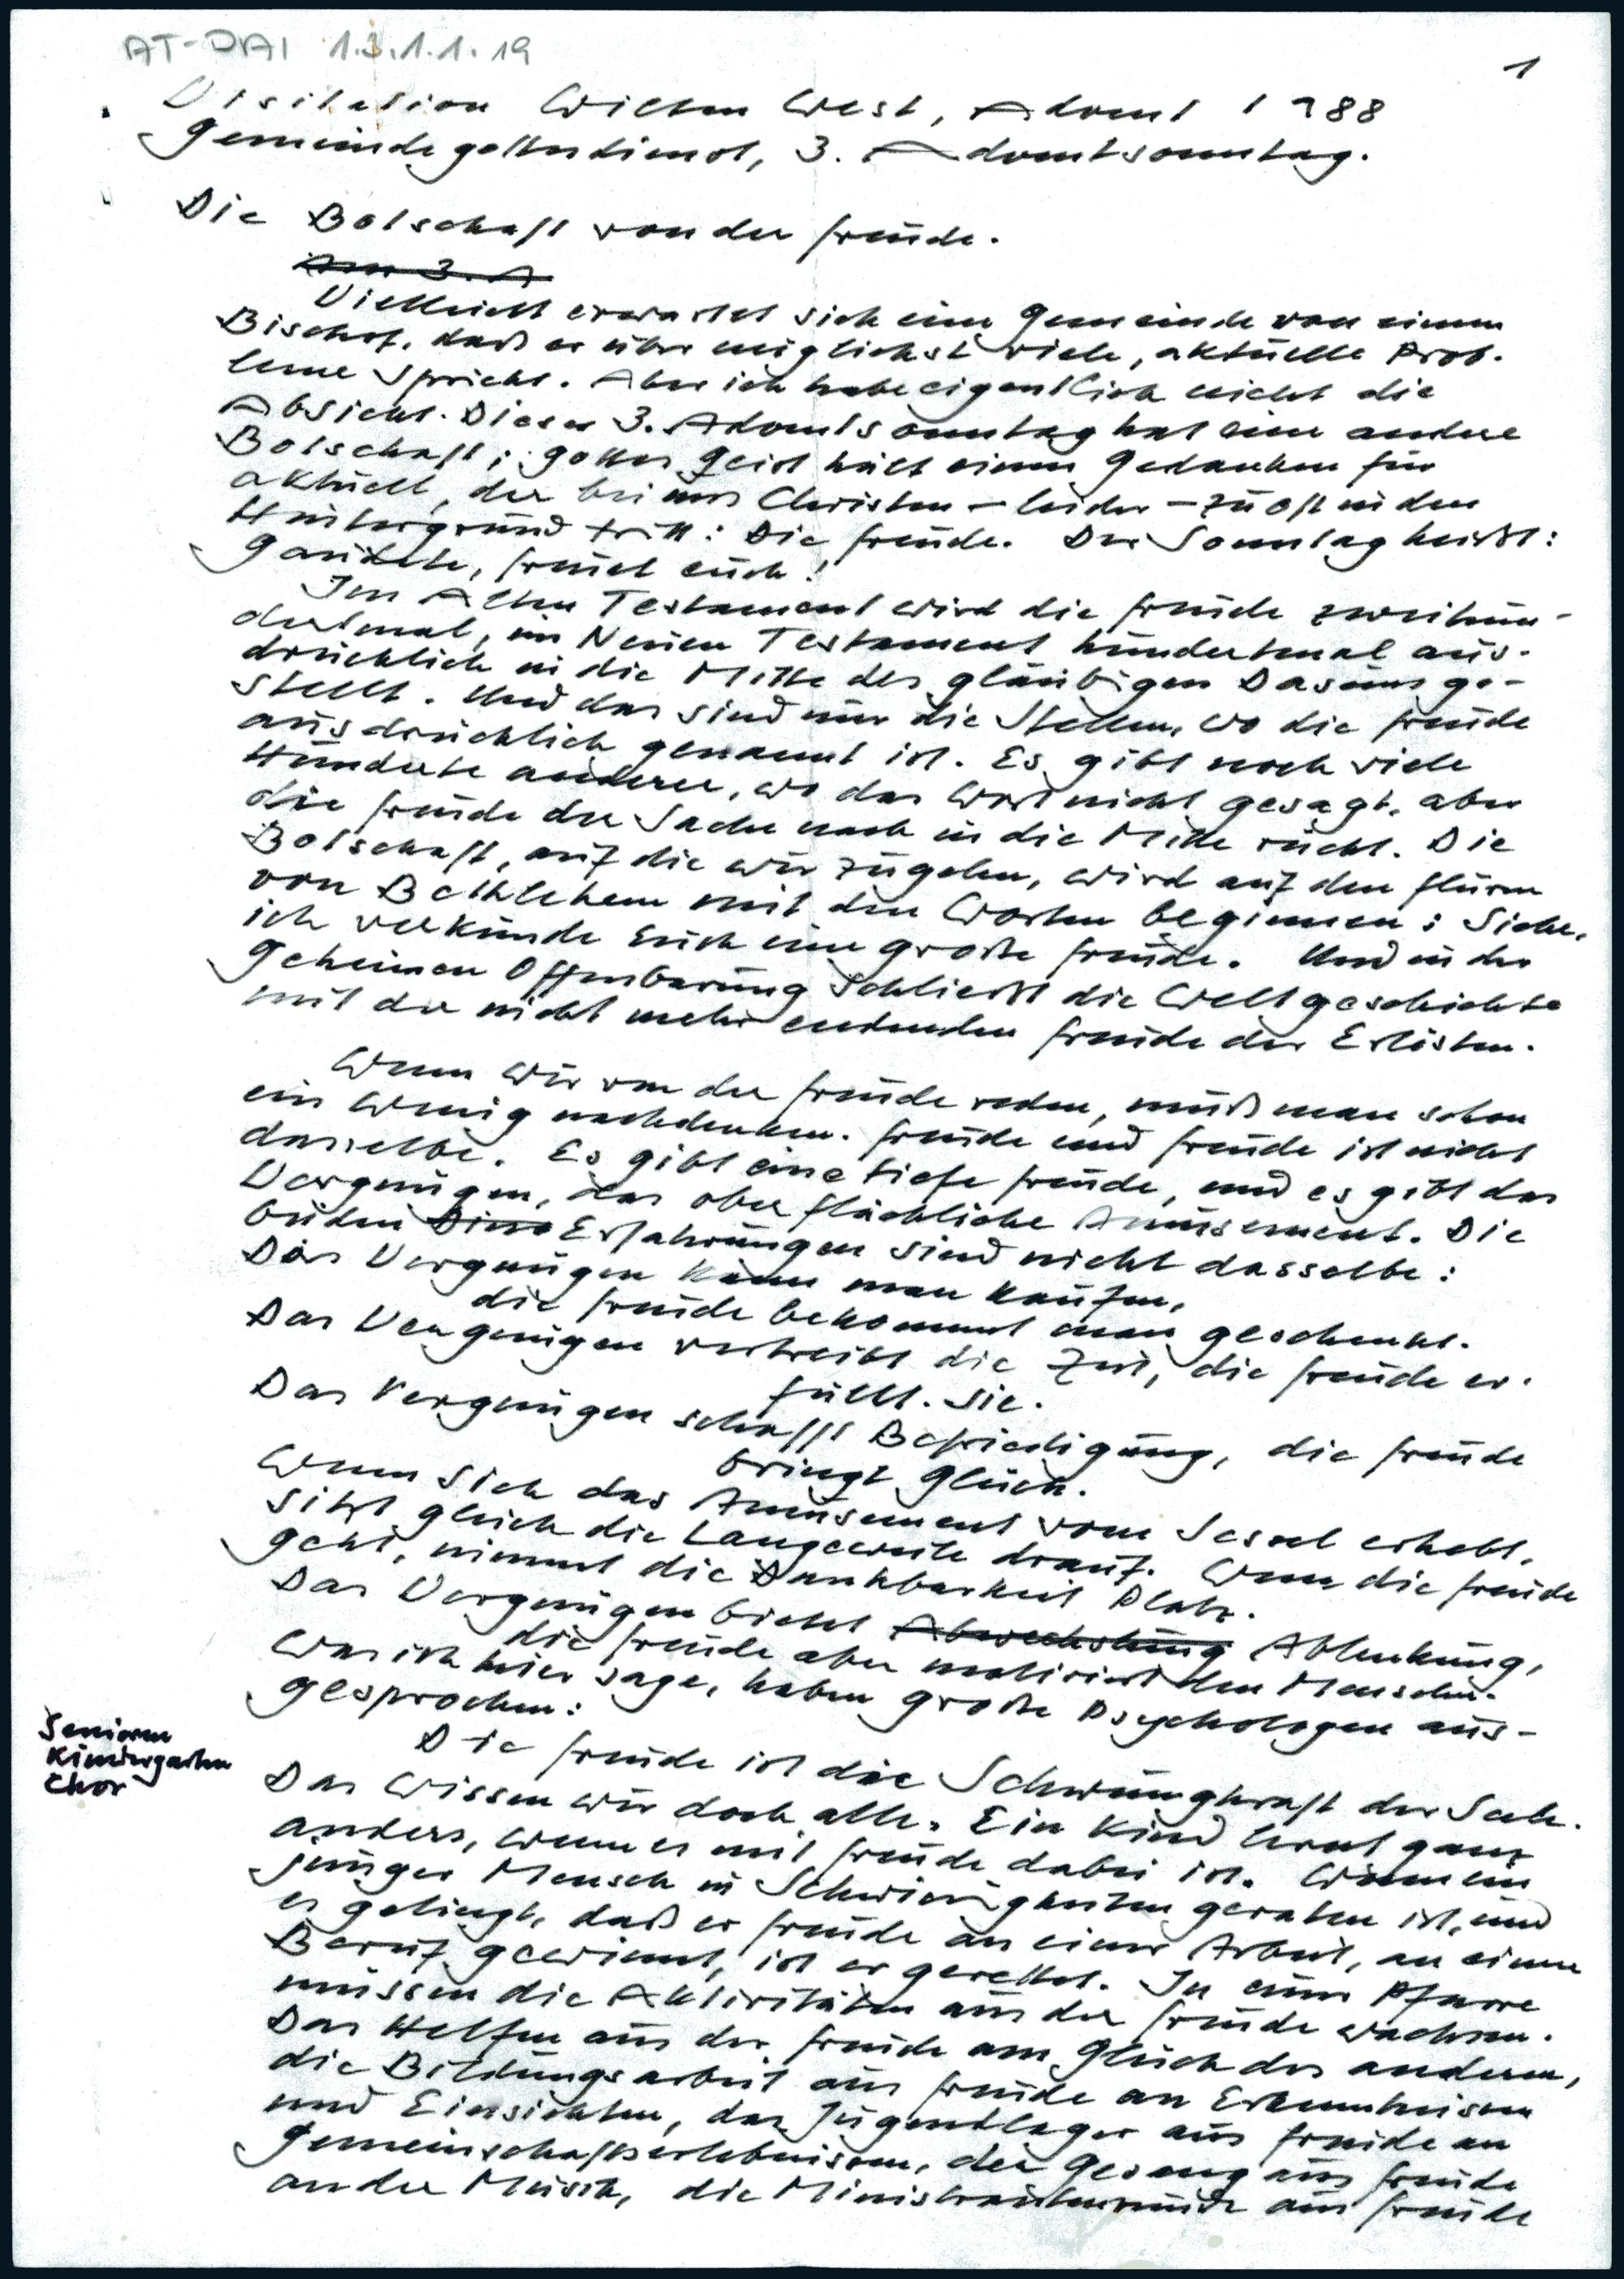 AT-DAI 1.3.1.1.19
1
Visitation Wilten West, Advent 1988
Gemeindegottesdienst, 3. Adventsonntag.
Die Botschaft von der Freude.
Am 3. A
Vielleicht erwartet sich eine Gemeinde von einem
Bischof, daß er über möglichst viele, aktuelle Prob-
leme spricht. Aber ich habe eigentlich nicht die
Absicht. Dieser 3. Adventsonntag hat eine andere
Botschaft; Gottes Geist hält einen Gedanken für
aktuell, der bei uns Christen – leider – zu oft in den
Hintergrund tritt: Die Freude. Der Sonntag heißt:
Gaudete, freuet euch!
Im Alten Testament wird die Freude zweihun-
dertmal, im Neuen Testament hundertmal aus-
drücklich in die Mitte des gläubigen Daseins ge-
stellt. Und das sind nur die Stellen, wo die Freude
ausdrücklich genannt ist. Es gibt noch viele
Hunderte anderer, wo das Wort nicht gesagt, aber
die Freude der Sache nach in die Mitte rückt. Die
Botschaft, auf die wir zugehen, wird auf den Fluren
von Bethlehem mit den Worten beginnen: Siehe,
ich verkünde Euch eine große Freude. Und in der
Geheimen Offenbarung schließt die Weltgeschichte
mit der nicht mehr endenden Freude der Erlösten.
Wenn wir von der Freude reden, muß man schon
ein wenig nachdenken. Freude und Freude ist nicht
dasselbe. Es gibt eine tiefe Freude, und es gibt das
Vergnügen, das oberflächliche Amüsement. Die
beiden Dinge Erfahrungen sind nicht dasselbe:
Das Vergnügen kann man kaufen,
die Freude bekommt man geschenkt.
Das Vergnügen vertreibt die Zeit, die Freude er-
füllt sie.
Das Vergnügen schafft Befriedigung, die Freude
bringt Glück.
Wenn sich das Amüsement vom Sessel erhebt,
sitzt gleich die Langeweile drauf. Wenn die Freude
geht, nimmt die Dankbarkeit Platz.
Das Vergnügen bietet Abwechslung Ablenkung,
die Freude aber motiviert den Menschen.
Was ich hier sage, haben große Psychologen aus-
gesprochen:
Die Freude ist die Schwungkraft der Seele.
Senioren
Kindergarten
Chor
Das wissen wir doch alle. Ein Kind lernt ganz
anders, wenn es mit Freude dabei ist. Wenn ein
junger Mensch in Schwierigkeiten geraten ist, und
es gelingt, daß er Freude an einer Arbeit, an einem
Beruf gewinnt, ist er gerettet. In einer Pfarre
müssen die Aktivitäten aus der Freude wachsen.
Das Helfen aus der Freude am Glück des anderen,
die Bildungsarbeit aus Freude an Erkenntnissen
und Einsichten, das Jugendlager aus Freude an
Gemeinschaftserlebnissen, der Gesang aus Freude
an der Musik, die Ministrantenrunde aus Freude